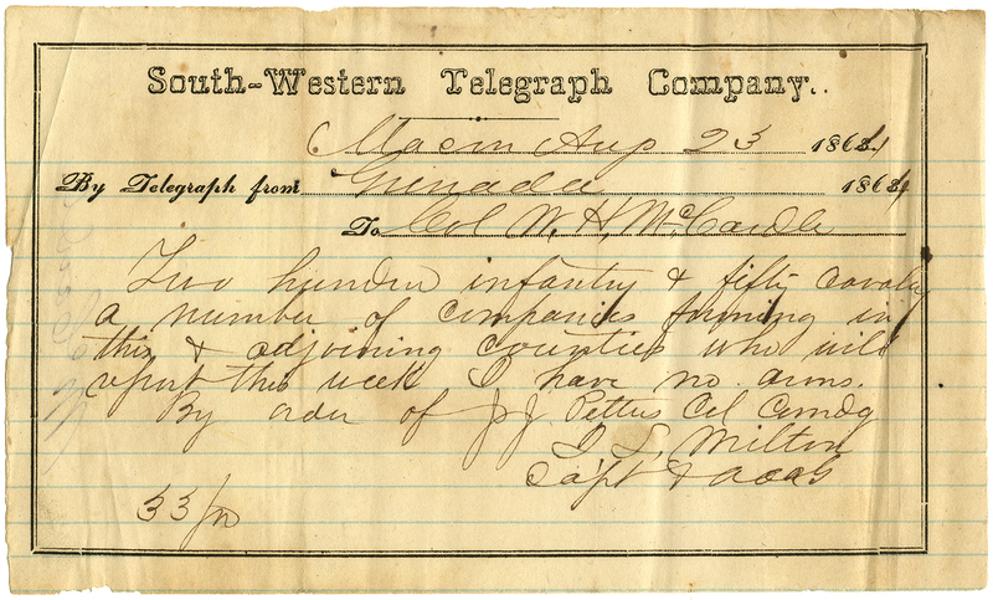 South-Western Telegraph Company.
Macon Aug 23 1864
By Telegraph from Grenada 1864
To Col W. H. McCardle
Two hundred infantry & fifty Cavalry
a number of companies forming in
this & adjoining counties who will
report this week I have no arms.
By order of J J Pettus Col Comdg
Milton
Capt & AAAG
33/